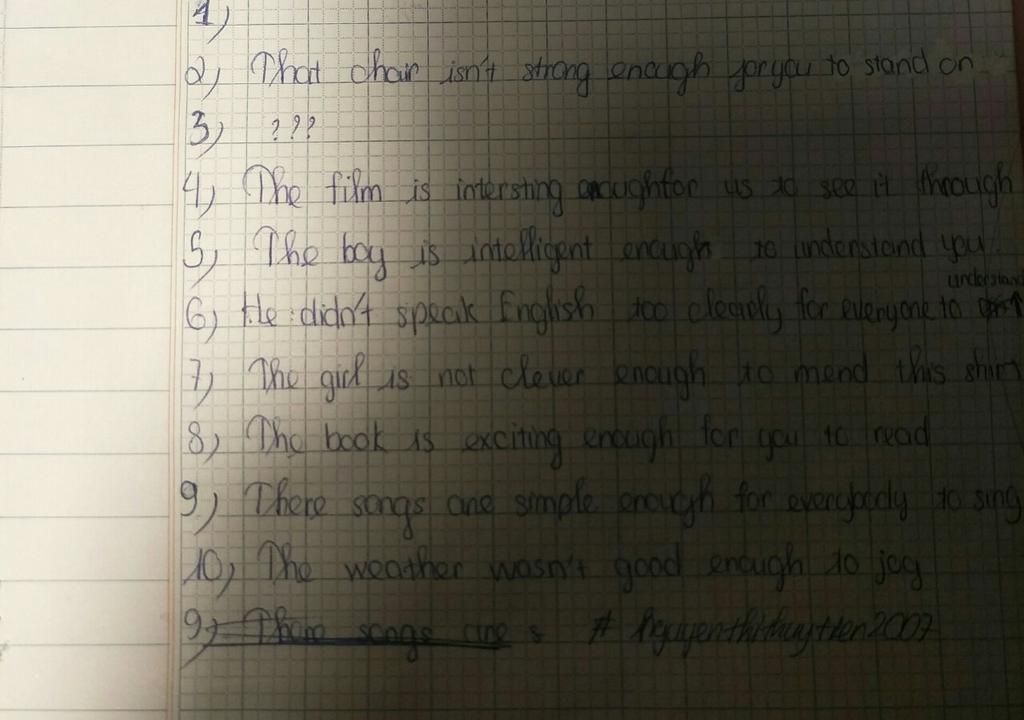 1)
2) That chair isn't strong enough for you to stand on
3) ???
4) The film is intersting enough for us to see it through
5) The boy is intelligent enough to understand you
understand
6) He didn't speak English too clearly for everyone to
7) The girl is not clever enough to mend this shirt
8) The book is exciting enough for you to read
9) There songs are simple enough for everybody to sing
10) The weather wasn't good enough to jog
9) There songs are s # Nguyenthithuytien2007